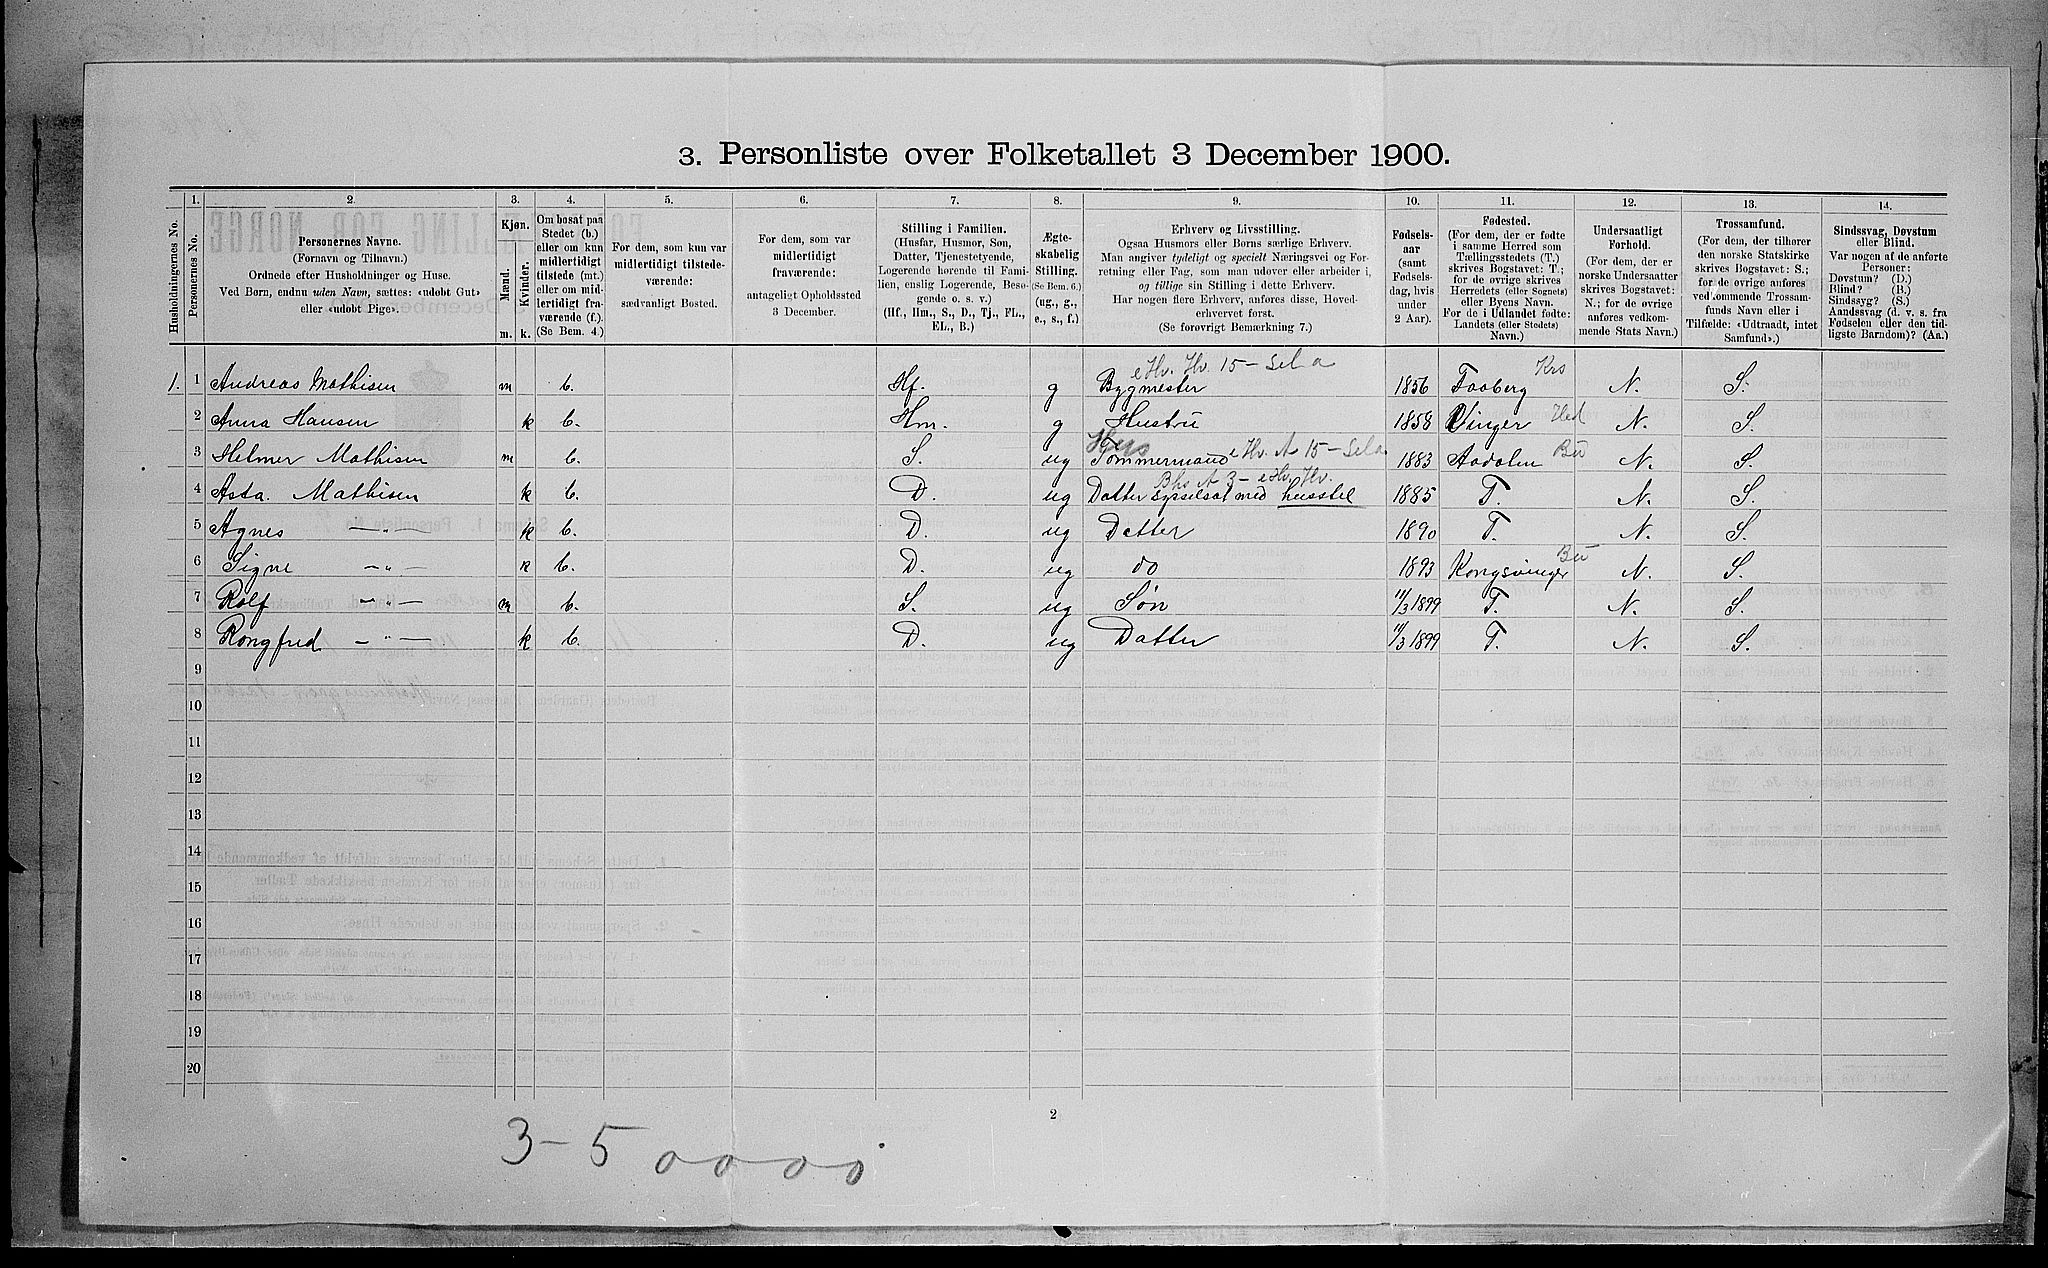 3. Personliste over Folketallet 3 December 1900.
Husholdningernes No.
1. Personernes No.
2. Personernes Navne. (Fornavn og Tilnavn.) Ordnede efter Husholdninger og Huse. Ved Børn, endnu uden Navn, sættes: «udøbt Gut» eller «udøbt Pige».
3. Kjøn. Mænd. m. Kvinder. k.
4. Om bosat paa Stedet (b.) eller om kun midlertidigt tilstede (mt.) eller om midlertidigt fraværende (f.) (Se Bem. 4.)
5. For dem, som kun var midlertidigt tilstedeværende: sædvanligt Bosted.
6. For dem, som var midlertidigt fraværende: antageligt Opholdssted 3 December.
7. Stilling i Familien. (Husfar, Husmor, Søn, Datter, Tjenestetyende, Logerende hørende til Familien, enslig Logerende, Besøgende o. s. v.) (Hf., Hm., S., D., Tj., FL., EL., B.)
8. Ægteskabelig Stilling. (Se Bem. 6.) (ug., g., e., s., f.)
9. Erhverv og Livsstilling. Ogsaa Husmors eller Børns særlige Erhverv. Man angiver tydeligt og specielt Næringsvei og Forretning eller Fag, som man udøver eller arbeider i, og tillige sin Stilling i dette Erhverv. Har nogen flere Erhverv, anføres disse, Hovederhvervet først. (Se forøvrigt Bemærkning 7.)
10. Fødselsaar (samt Fødselsdag, hvis under 2 Aar).
11. Fødested. (For dem, der er fødte i samme Herred som Tællingsstedets (T.) skrives Bogstavet: T.; for de øvrige skrives Herredets (eller Sognets) eller Byens Navn. For de i Udlandet fødte: Landets (eller Stedets) Navn.)
12. Undersaatligt Forhold. (For dem, der er norske Undersaatter skrives Bogstavet: N.; for de øvrige anføres vedkommende Stats Navn.)
13. Trossamfund. (For dem, der tilhører den norske Statskirke skrives Bogstavet: S.; for de øvrige anføres vedkommende Trossamfunds Navn eller i Tilfælde: «Udtraadt, intet Samfund».)
14. Sindssvag, Døvstum eller Blind. Var nogen af de anførte Personer: Døvstum? (D.) Blind? (B.) Sindssyg? (S.) Aandssvag (d. v. s. fra Fødselen eller den tidligste Barndom)? (Aa.)
eHv. Hv. 15 – Sela Krs
1. 1 Andreas Mathisen m b. Hf. g Bygmester 1856 Faaberg N. S.
2 Anna Hansen k b. Hm. g Hustru 1858 Vinger Hed N. S.
3 Helmer Mathisen m b. S. ug Tømmermand eHv. A 15 – Sela 1883 Aadalen Bu N. S.
Bhs A 3 – eHv. Hv.
4 Asta. Mathisen k b. D. ug Datter sysselsat med husstel 1885 T. N. S.
5 Agnes –"– k b. D. ug Datter 1890 T. N. S.
6 Signe –"– k b. D. ug do 1893 Kongsvinger Bu N. S.
7 Rolf –"– m b. S. ug Søn 11/3 1899 T. N. S.
8 Rongfred –"– k b. D. ug Datter 11/3 1899 T. N. S.
9
10
11
12
13
14
15
16
17
18
19
20
2
3 – 5 0 0 0 0